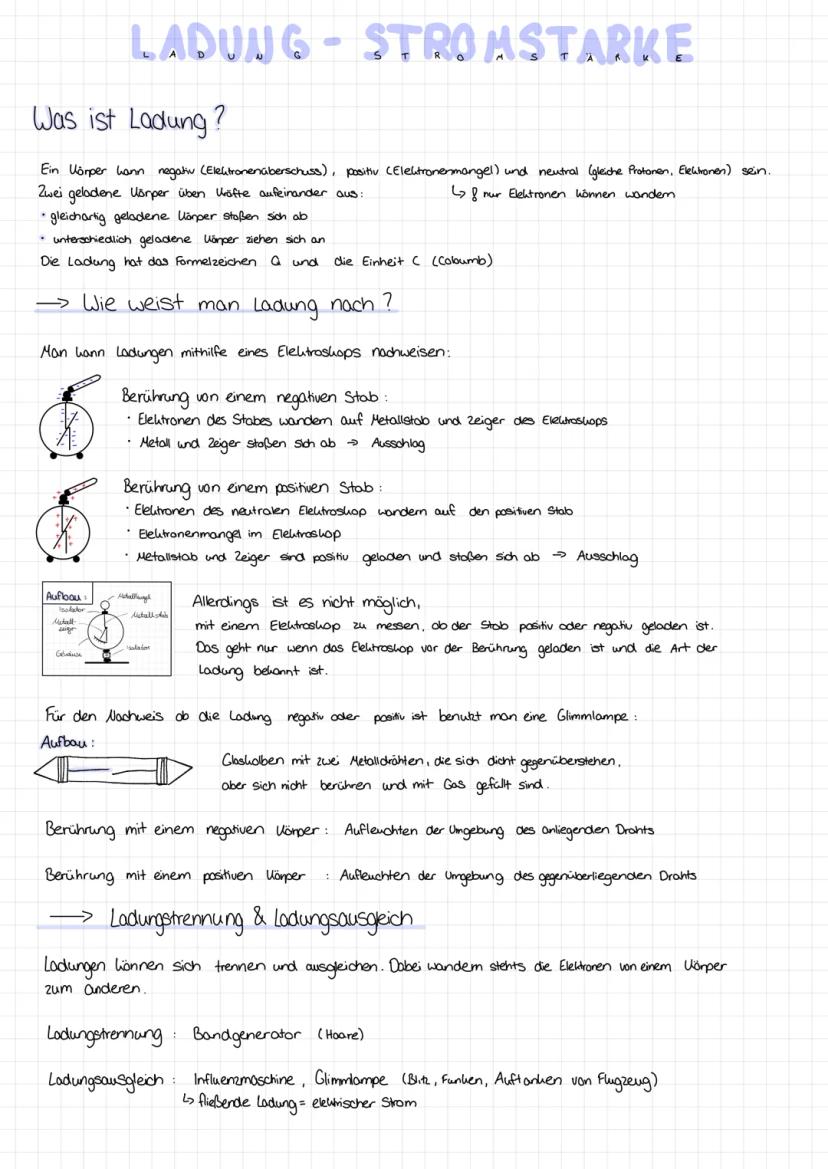 LADUNG - STROMSTÄRKE
LADUNG STROMSTÄRKE
Was ist Ladung?
Ein Körper kann negativ (Elektronenüberschuss), positiv (Elektronenmangel) und neutral (gleiche Protonen, Elektronen) sein.
Zwei geladene Körper üben Kräfte aufeinander aus: ↳ nur Elektronen können wandern
• gleichartig geladene Körper stoßen sich ab
• unterschiedlich geladene Körper ziehen sich an
Die Ladung hat das Formelzeichen Q und die Einheit C (Coloumb)
→ Wie weist man Ladung nach?
Man kann Ladungen mithilfe eines Elektroskops nachweisen:
Berührung von einem negativen Stab:
• Elektronen des Stabes wandern auf Metallstab und Zeiger des Elektroskops
• Metall und Zeiger stoßen sich ab → Ausschlag
Berührung von einem positiven Stab:
• Elektronen des neutralen Elektroskop wandern auf den positiven Stab
• Elektronenmangel im Elektroskop
• Metallstab und Zeiger sind positiv geladen und stoßen sich ab → Ausschlag
Aufbau:
Metallkugel
Isolator
Metallstab
Metall-
zeiger
Gehäuse
Isolator
Allerdings ist es nicht möglich,
mit einem Elektroskop zu messen, ob der Stab positiv oder negativ geladen ist.
Das geht nur wenn das Elektroskop vor der Berührung geladen ist und die Art der
Ladung bekannt ist.
Für den Nachweis ob die Ladung negativ oder positiv ist benutzt man eine Glimmlampe:
Aufbau:
Glaskolben mit zwei Metalldrähten, die sich dicht gegenüberstehen,
aber sich nicht berühren und mit Gas gefüllt sind.
Berührung mit einem negativen Körper: Aufleuchten der Umgebung des anliegenden Drahts
Berührung mit einem positiven Körper : Aufleuchten der Umgebung des gegenüberliegenden Drahts
→ Ladungstrennung & Ladungsausgleich
Ladungen können sich trennen und ausgleichen. Dabei wandern stehts die Elektronen von einem Körper
zum anderen.
Ladungstrennung: Bandgenerator (Haare)
Ladungsausgleich: Influenzmaschine, Glimmlampe (Blitz, Funken, Auftanken von Flugzeug)
↳ fließende Ladung = elektrischer Strom